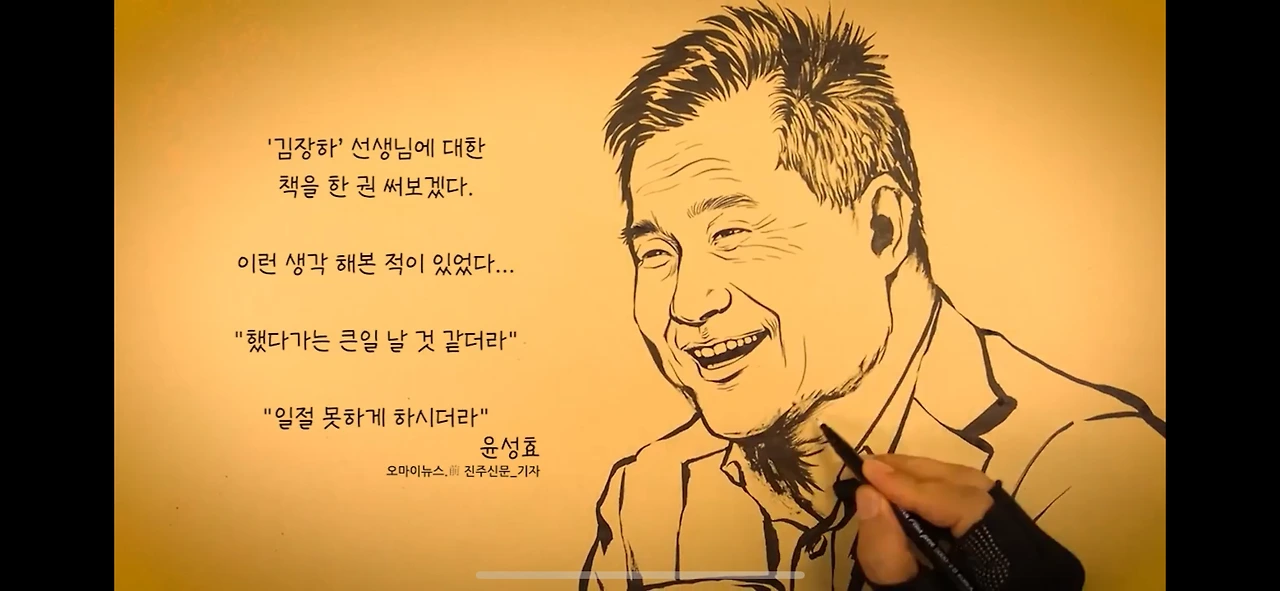 '김장하’ 선생님에 대한
책을 한 권 써보겠다.
이런 생각 해본 적이 있었다...
"했다가는 큰일 날 것 같더라"
"일절 못하게 하시더라"
윤성효
오마이뉴스.前 진주신문_기자